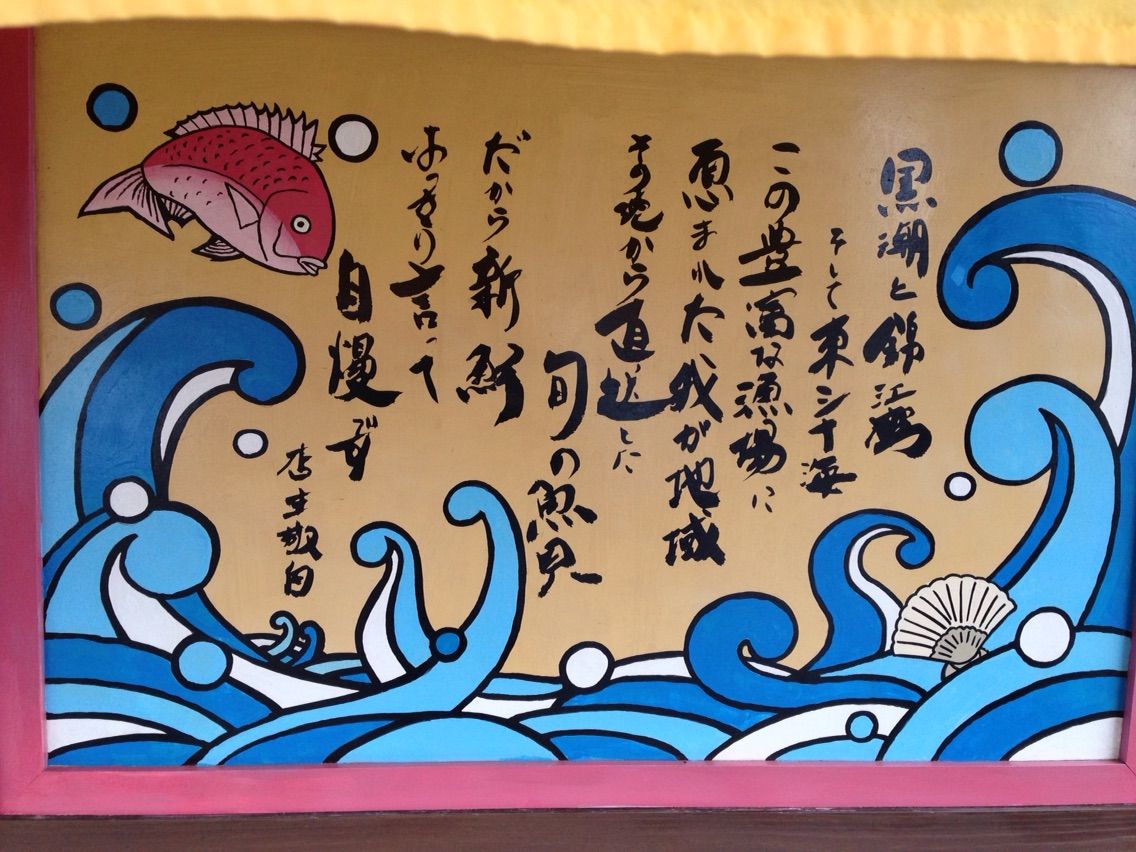 黒潮と錦江湾
そして東シナ海
この豊富な漁場に
恵まれた我が地域
その から直送した
旬の魚貝
だから新鮮
はっきり言って
自慢です
店主敬白